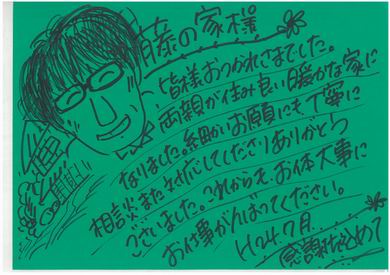 藤の家様
皆様おつかれさまでした。
両親が住み良い暖かな家に
なりました。細かいお願にも、丁寧に
相談、また対応してくださりありがとう
ございました。これからも、お体大事に
お仕事がんばってください。
H24.7月
感謝をこめて